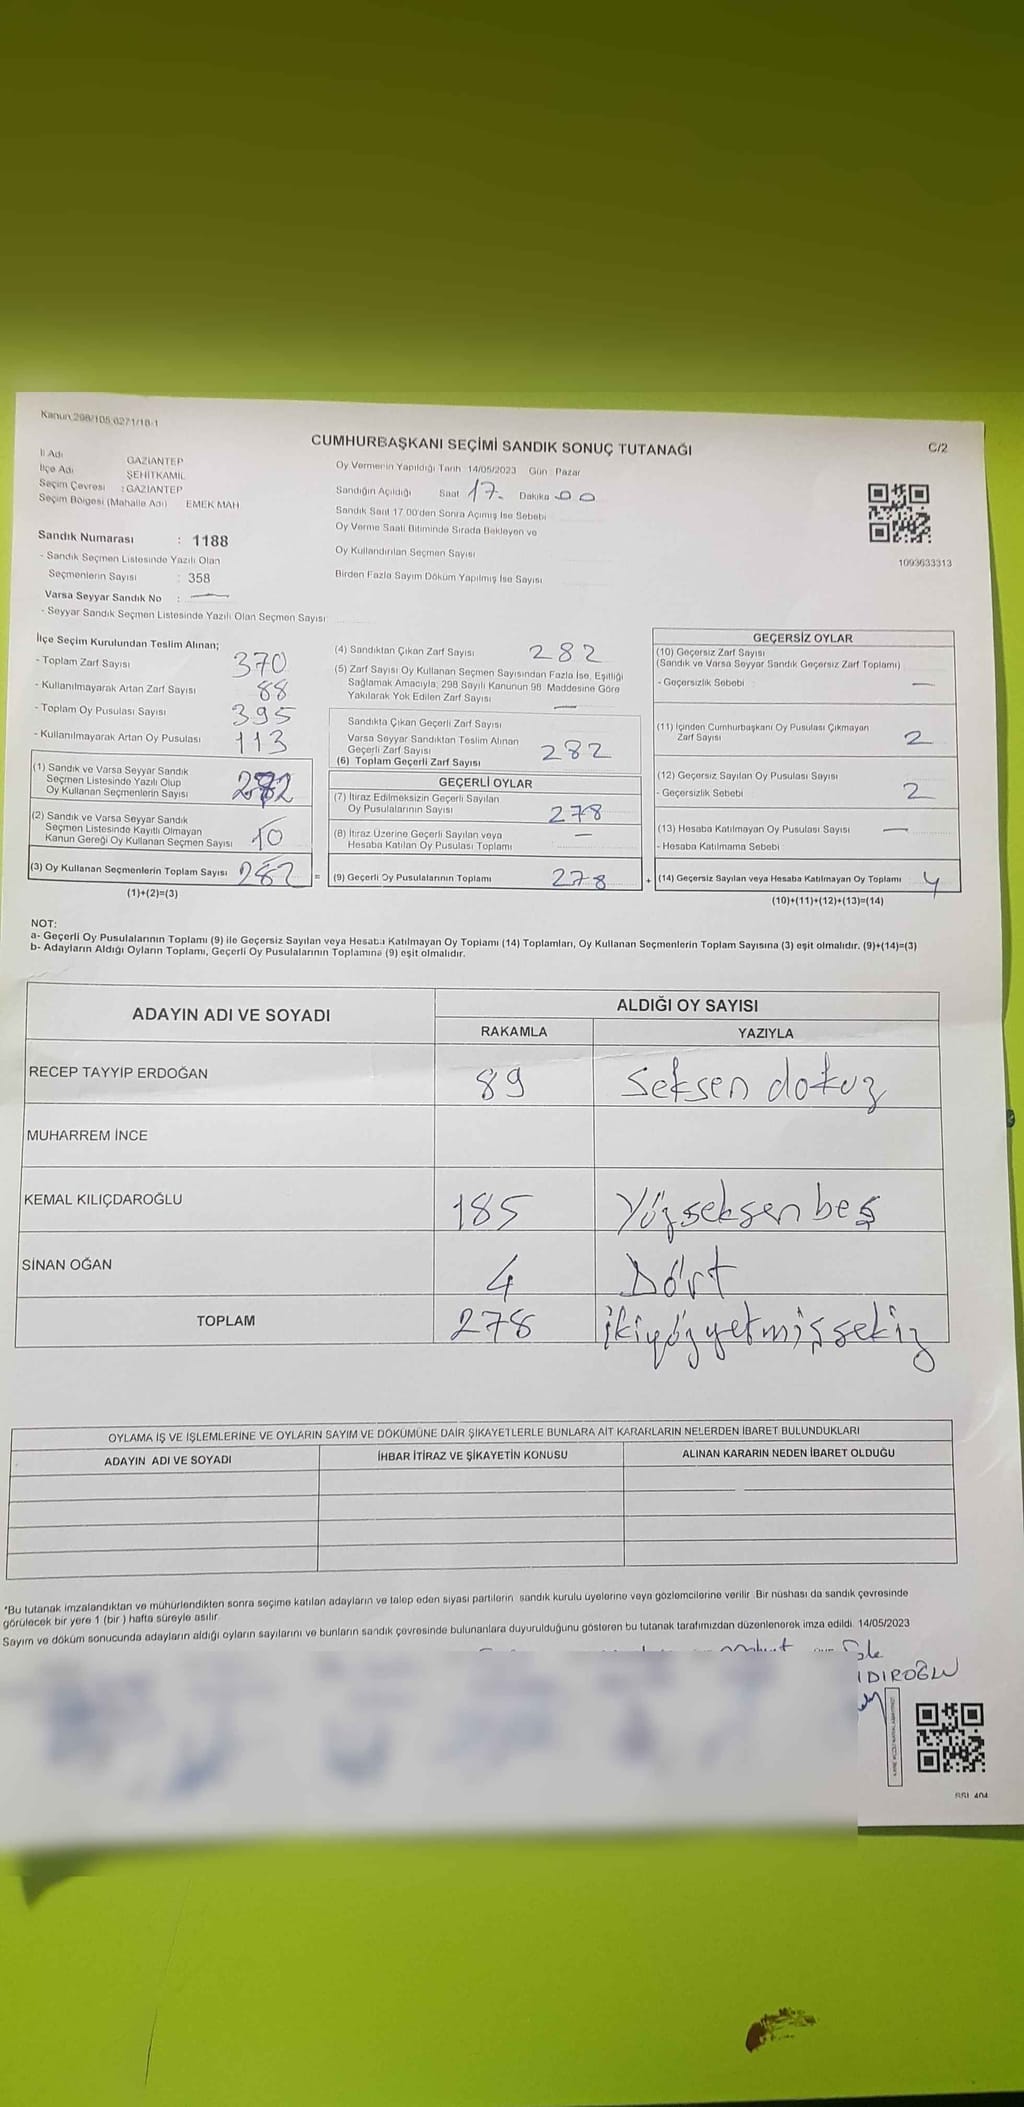 Kanun 298/105,6271/18-1
CUMHURBAŞKANI SEÇİMİ SANDIK SONUÇ TUTANAĞI
C/2
İl Adı GAZİANTEP
İlçe Adı ŞEHİTKAMİL
Seçim Çevresi : GAZİANTEP
Seçim Bölgesi (Mahalle Adı) EMEK MAH
Sandık Numarası : 1188
- Sandık Seçmen Listesinde Yazılı Olan
Seçmenlerin Sayısı : 358
Varsa Seyyar Sandık No : —
- Seyyar Sandık Seçmen Listesinde Yazılı Olan Seçmen Sayısı
Oy Vermenin Yapıldığı Tarih 14/05/2023 Gün : Pazar
Sandığın Açıldığı Saat 17 Dakika 00
Sandık Saat 17.00'den Sonra Açımış İse Sebebi
Oy Verme Saati Bitiminde Sırada Bekleyen ve
Oy Kullandırılan Seçmen Sayısı
Birden Fazla Sayım Döküm Yapılmış İse Sayısı
1093633313
İlçe Seçim Kurulundan Teslim Alınan;
- Toplam Zarf Sayısı 370
- Kullanılmayarak Artan Zarf Sayısı 88
- Toplam Oy Pusulası Sayısı 395
- Kullanılmayarak Artan Oy Pusulası 113
(1) Sandık ve Varsa Seyyar Sandık
Seçmen Listesinde Yazılı Olup
Oy Kullanan Seçmenlerin Sayısı
(2) Sandık ve Varsa Seyyar Sandık
Seçmen Listesinde Kayıtlı Olmayan
Kanun Gereği Oy Kullanan Seçmen Sayısı 10
(3) Oy Kullanan Seçmenlerin Toplam Sayısı 282 =
(1)+(2)=(3)
(4) Sandıktan Çıkan Zarf Sayısı 282
(5) Zarf Sayısı Oy Kullanan Seçmen Sayısından Fazla İse, Eşitliği
Sağlamak Amacıyla, 298 Sayılı Kanunun 98. Maddesine Göre
Yakılarak Yok Edilen Zarf Sayısı —
Sandıkta Çıkan Geçerli Zarf Sayısı
Varsa Seyyar Sandıktan Teslim Alınan
Geçerli Zarf Sayısı
(6) Toplam Geçerli Zarf Sayısı 282
GEÇERLİ OYLAR
(7) İtiraz Edilmeksizin Geçerli Sayılan
Oy Pusulalarının Sayısı 278
(8) İtiraz Üzerine Geçerli Sayılan veya
Hesaba Katılan Oy Pusulası Toplamı —
(9) Geçerli Oy Pusulalarının Toplamı 278 +
GEÇERSİZ OYLAR
(10) Geçersiz Zarf Sayısı
(Sandık ve Varsa Seyyar Sandık Geçersiz Zarf Toplamı)
- Geçersizlik Sebebi —
(11) İçinden Cumhurbaşkanı Oy Pusulası Çıkmayan
Zarf Sayısı 2
(12) Geçersiz Sayılan Oy Pusulası Sayısı
- Geçersizlik Sebebi 2
(13) Hesaba Katılmayan Oy Pusulası Sayısı —
- Hesaba Katılmama Sebebi
(14) Geçersiz Sayılan veya Hesaba Katılmayan Oy Toplamı 4
(10)+(11)+(12)+(13)=(14)
NOT:
a- Geçerli Oy Pusulalarının Toplamı (9) ile Geçersiz Sayılan veya Hesaba Katılmayan Oy Toplamı (14) Toplamları, Oy Kullanan Seçmenlerin Toplam Sayısına (3) eşit olmalıdır. (9)+(14)=(3)
b- Adayların Aldığı Oyların Toplamı, Geçerli Oy Pusulalarının Toplamına (9) eşit olmalıdır.
ADAYIN ADI VE SOYADI ALDIĞI OY SAYISI
RAKAMLA YAZIYLA
RECEP TAYYİP ERDOĞAN 89 Seksen dokuz
MUHARREM İNCE
KEMAL KILIÇDAROĞLU 185 Yüzseksen beş
SİNAN OĞAN 4 Dört
TOPLAM 278 ikiyüzyetmişsekiz
OYLAMA İŞ VE İŞLEMLERİNE VE OYLARIN SAYIM VE DÖKÜMÜNE DAİR ŞİKAYETLERLE BUNLARA AİT KARARLARIN NELERDEN İBARET BULUNDUKLARI
ADAYIN ADI VE SOYADI İHBAR İTİRAZ VE ŞİKAYETİN KONUSU ALINAN KARARIN NEDEN İBARET OLDUĞU
*Bu tutanak imzalandıktan ve mühürlendikten sonra seçime katılan adayların ve talep eden siyasi partilerin sandık kurulu üyelerine veya gözlemcilerine verilir. Bir nüshası da sandık çevresinde
görülecek bir yere 1 (bir ) hafta süreyle asılır.
Sayım ve döküm sonucunda adayların aldığı oyların sayılarını ve bunların sandık çevresinde bulunanlara duyurulduğunu gösteren bu tutanak tarafımızdan düzenlenerek imza edildi. 14/05/2023
IDIROĞLU